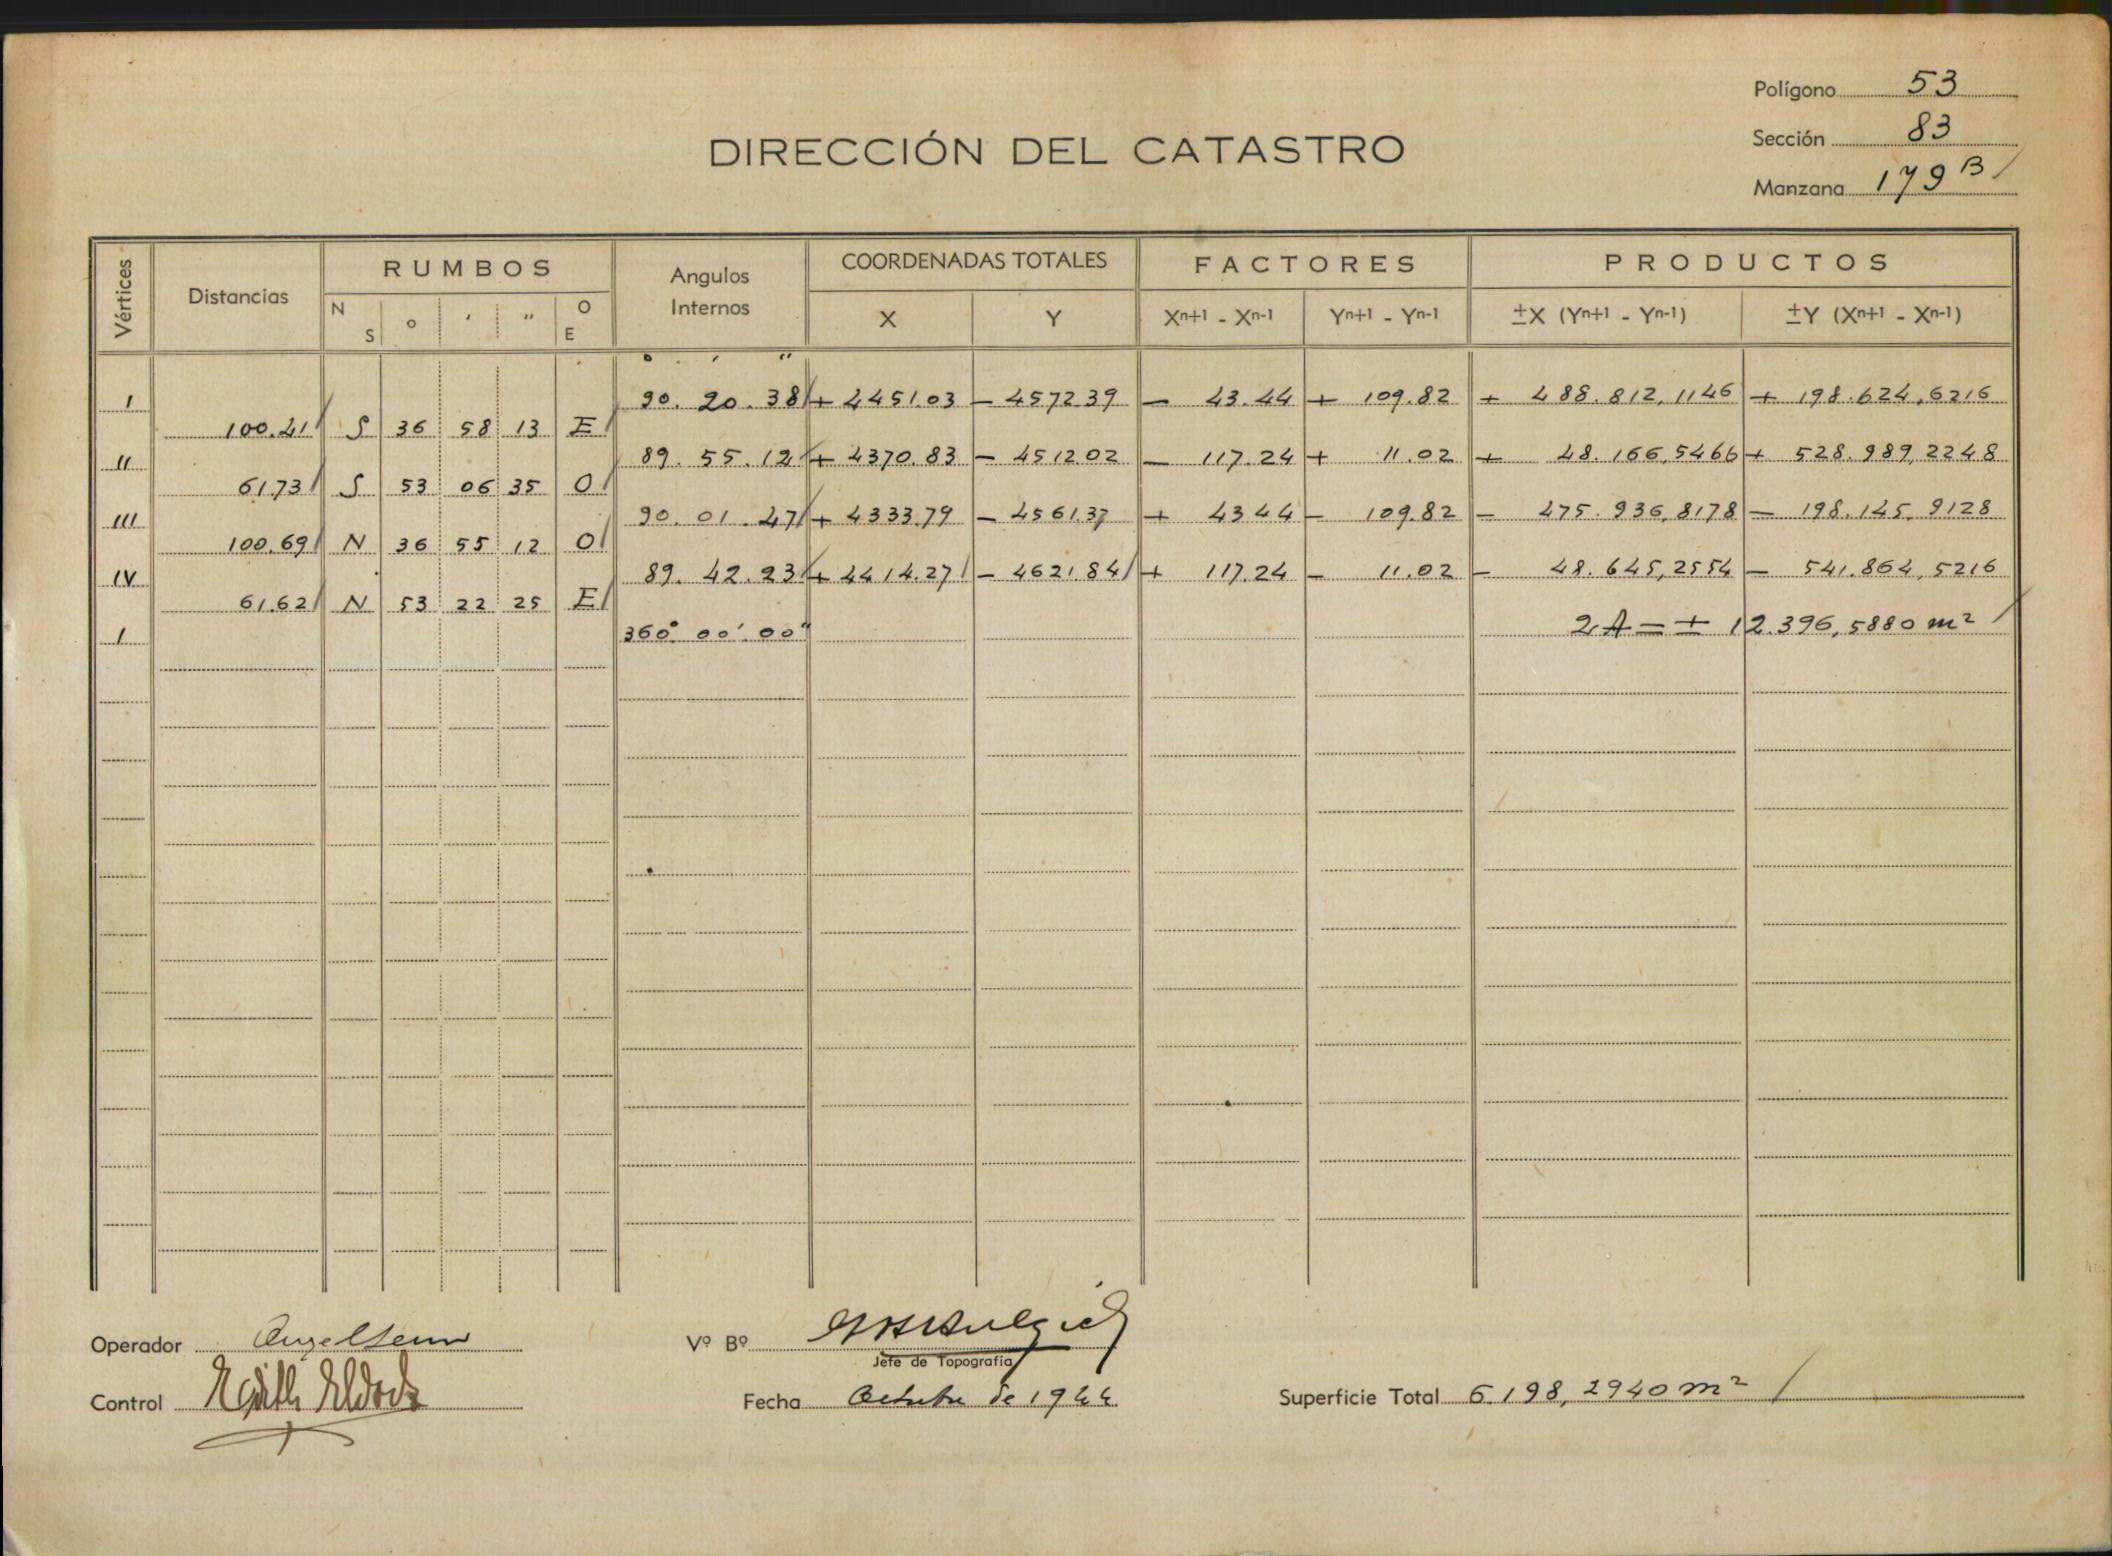 Polígono 53
Sección 83
Manzana 179 B /
DIRECCIÓN DEL CATASTRO
Vértices Distancias RUMBOS Angulos Internos COORDENADAS TOTALES FACTORES PRODUCTOS
N S ° ' " O E X Y Xn+1 - Xn-1 Yn+1 - Yn-1 ±X (Yn+1 - Yn-1) ±Y (Xn+1 - Xn-1)
° ' "
I 90. 20. 38 / + 4451.03 - 4572.39 - 43.44 + 109.82 + 488.812,1146 + 198.624,6216
100.41 / S 36 58 13 E /
II 89. 55. 12 / + 4370.83 - 4512.02 - 117.24 + 11.02 + 48.166,5466 + 528.989,2248
61.73 / S 53 06 35 O /
III 90. 01. 47 / + 4333.79 - 4561.37 + 43.44 - 109.82 - 475.936,8178 - 198.145,9128
100.69 / N 36 55 12 O /
IV 89. 42. 23 / + 4414.27 / - 4621.84 / + 117.24 - 11.02 - 48.645,2554 - 541.864,5216
61.62 / N 53 22 25 E /
I 360° 00' 00" 2A = ± 12.396,5880 m² /
Operador
Vº Bº
Jefe de Topografía
Control
Fecha Octubre de 1944
Superficie Total 6.198,2940 m² /